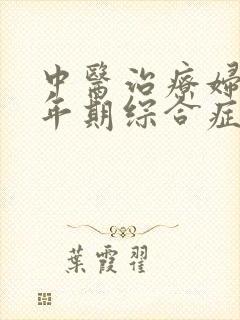 中醫治療婦
年期綜合症
葉霞翟